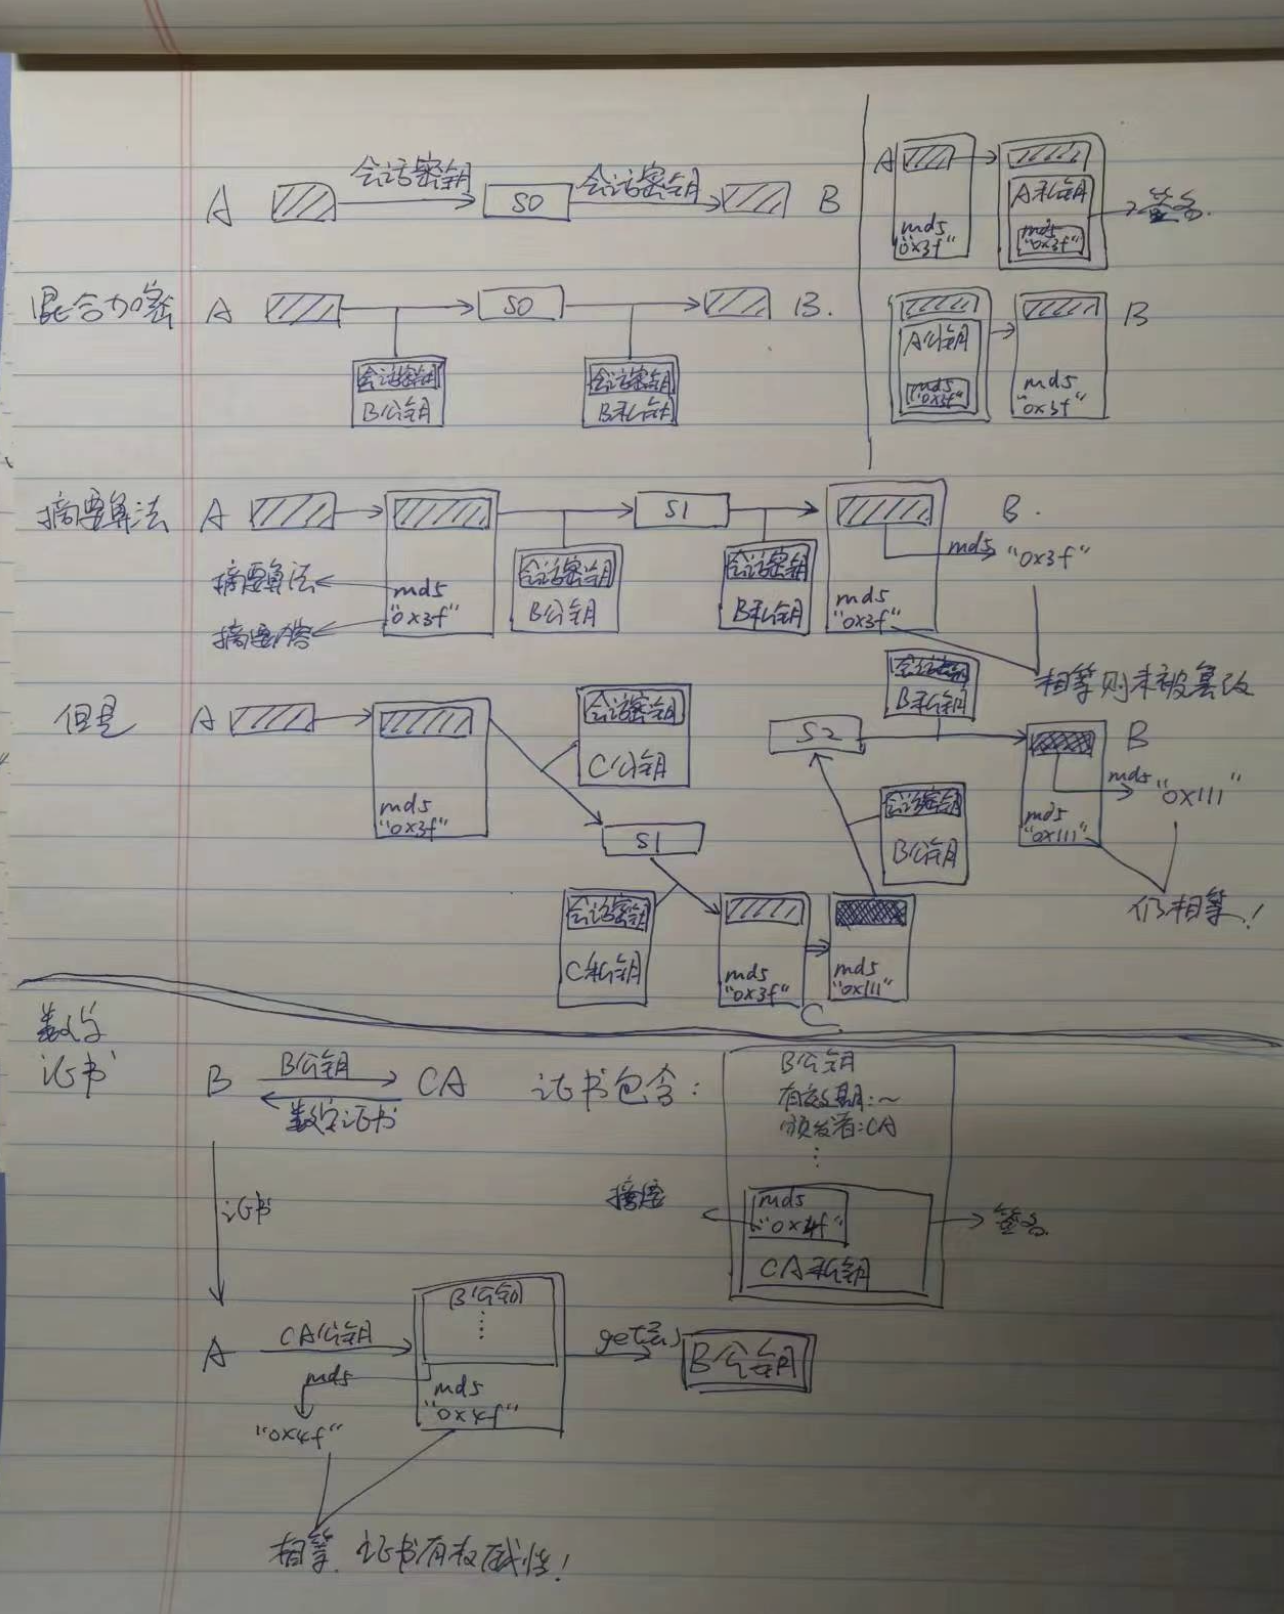 会话密钥 会话密钥
A S0 B
混合加密 A S0 B.
会话密钥 会话密钥
B公钥 B私钥
A
A私钥
md5 md5
"0x3f" "0x3f"
签名.
A公钥 B
md5 md5
"0x3f" "0x3f"
摘要算法 A S1 B.
会话密钥 会话密钥
md5 "0x3f"
摘要算法 md5 B公钥 B私钥 md5
摘要内容 "0x3f" "0x3f"
相等则未被篡改
但是 A
md5
"0x3f"
会话密钥
C公钥
S1
会话密钥
C私钥
md5
"0x3f"
C
md5
"0x111"
会话密钥
B公钥
S2
会话密钥
B私钥
B
md5 "0x111"
md5
"0x111"
仍相等!
数字
证书
B B公钥 CA
数字证书
证书包含:
B公钥
有效期:~
颁发者:CA
⋮
摘要
md5
"0x4f"
CA私钥
签名
证书
A CA公钥
B公钥
⋮
md5
"0x4f"
md5
"0x4f"
B公钥
相等. 证书有权威性!